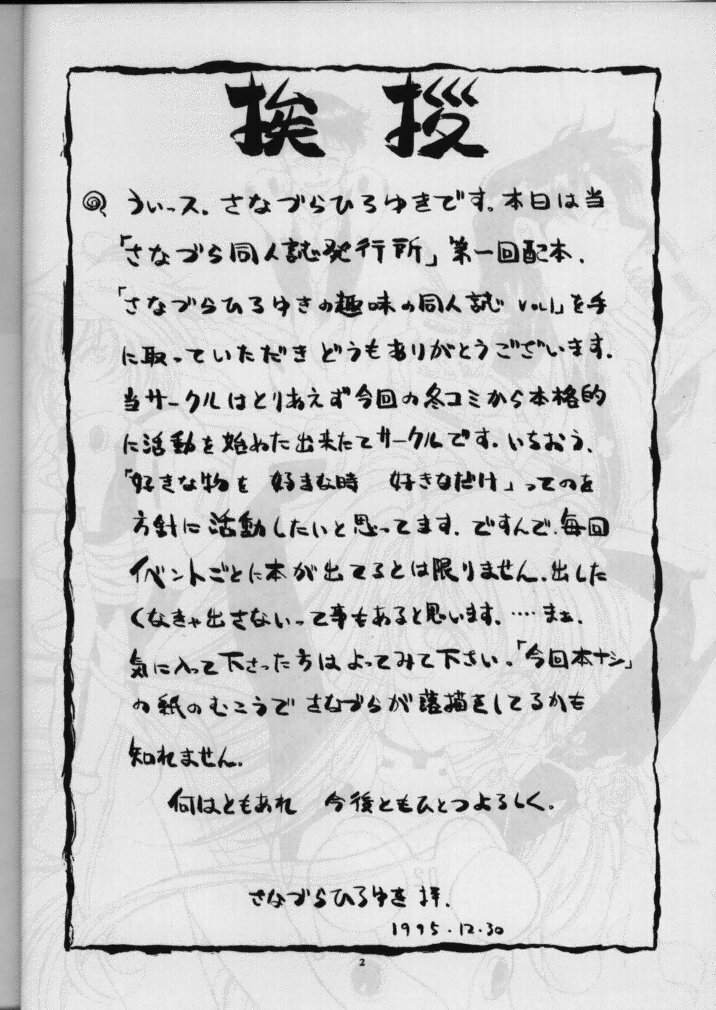 挨拶
うぃース.さなづらひろゆきです.本日は当
「さなづら同人誌発行所」第一回配本、
「さなづらひろゆきの趣味の同人誌 VOL1」を手
に取っていただき どうもありがとうございます.
当サークルはとりあえず今回の冬コミから本格的
に活動を始めた出来たてサークルです.いちおう、
「好きな物を 好きな時 好きなだけ」ってのを
方針に活動したいと思ってます.ですんで、毎回
イベントごとに本が出てるとは限りません.出した
くなきゃ出さないって事もあると思います.……まぁ、
気に入って下さった方はよってみて下さい。「今回本ナシ」
の紙のむこうで さなづらが落描きをしてるかも
知れません.
何はともあれ 今後ともひとつよろしく.
さなづらひろゆき 拝.
1995.12.30
2